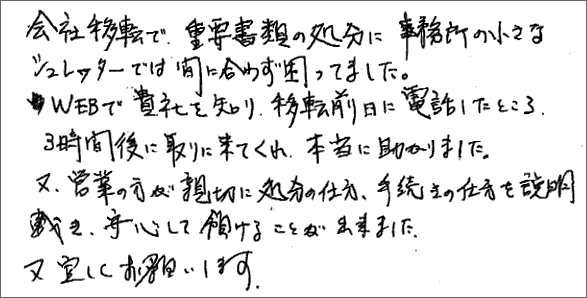 会社移転で、重要書類の処分に事務所の小さな
シュレッターでは間に合わず困ってました。
WEBで貴社を知り、移転前日に電話したところ、
3時間後に取りに来てくれ、本当に助かりました。
又、営業の方が親切に処分の仕方、手続きの仕方を説明
戴き、安心して預けることが出来ました。
又宜しくお願いします。